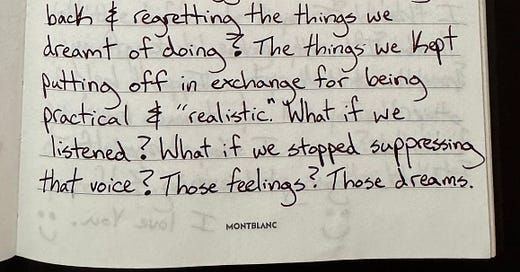 back & regretting the things we
dreamt of doing? The things we kept
putting off in exchange for being
practical & "realistic." What if we
listened? What if we stopped suppressing
that voice? Those feelings? Those dreams.
MONTBLANC